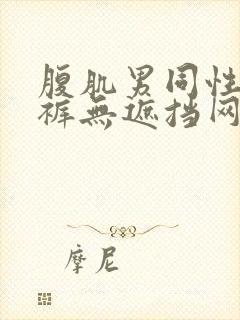 腹肌男同性
裤無遮挡网
摩尼